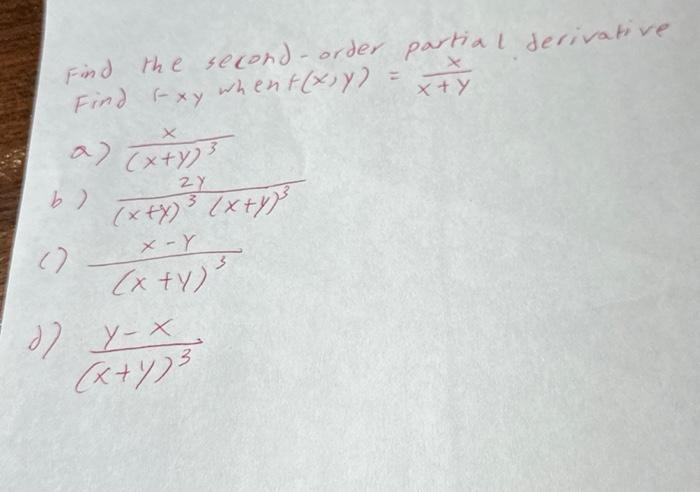 Find the second-order partial derivative
Find f-xy when f(x,y) = x/(x+y)
a) x/(x+y)^3
b) 2y/((x+y)^3 (x+y)^3)
c) x-y/(x+y)^3
d) y-x/(x+y)^3